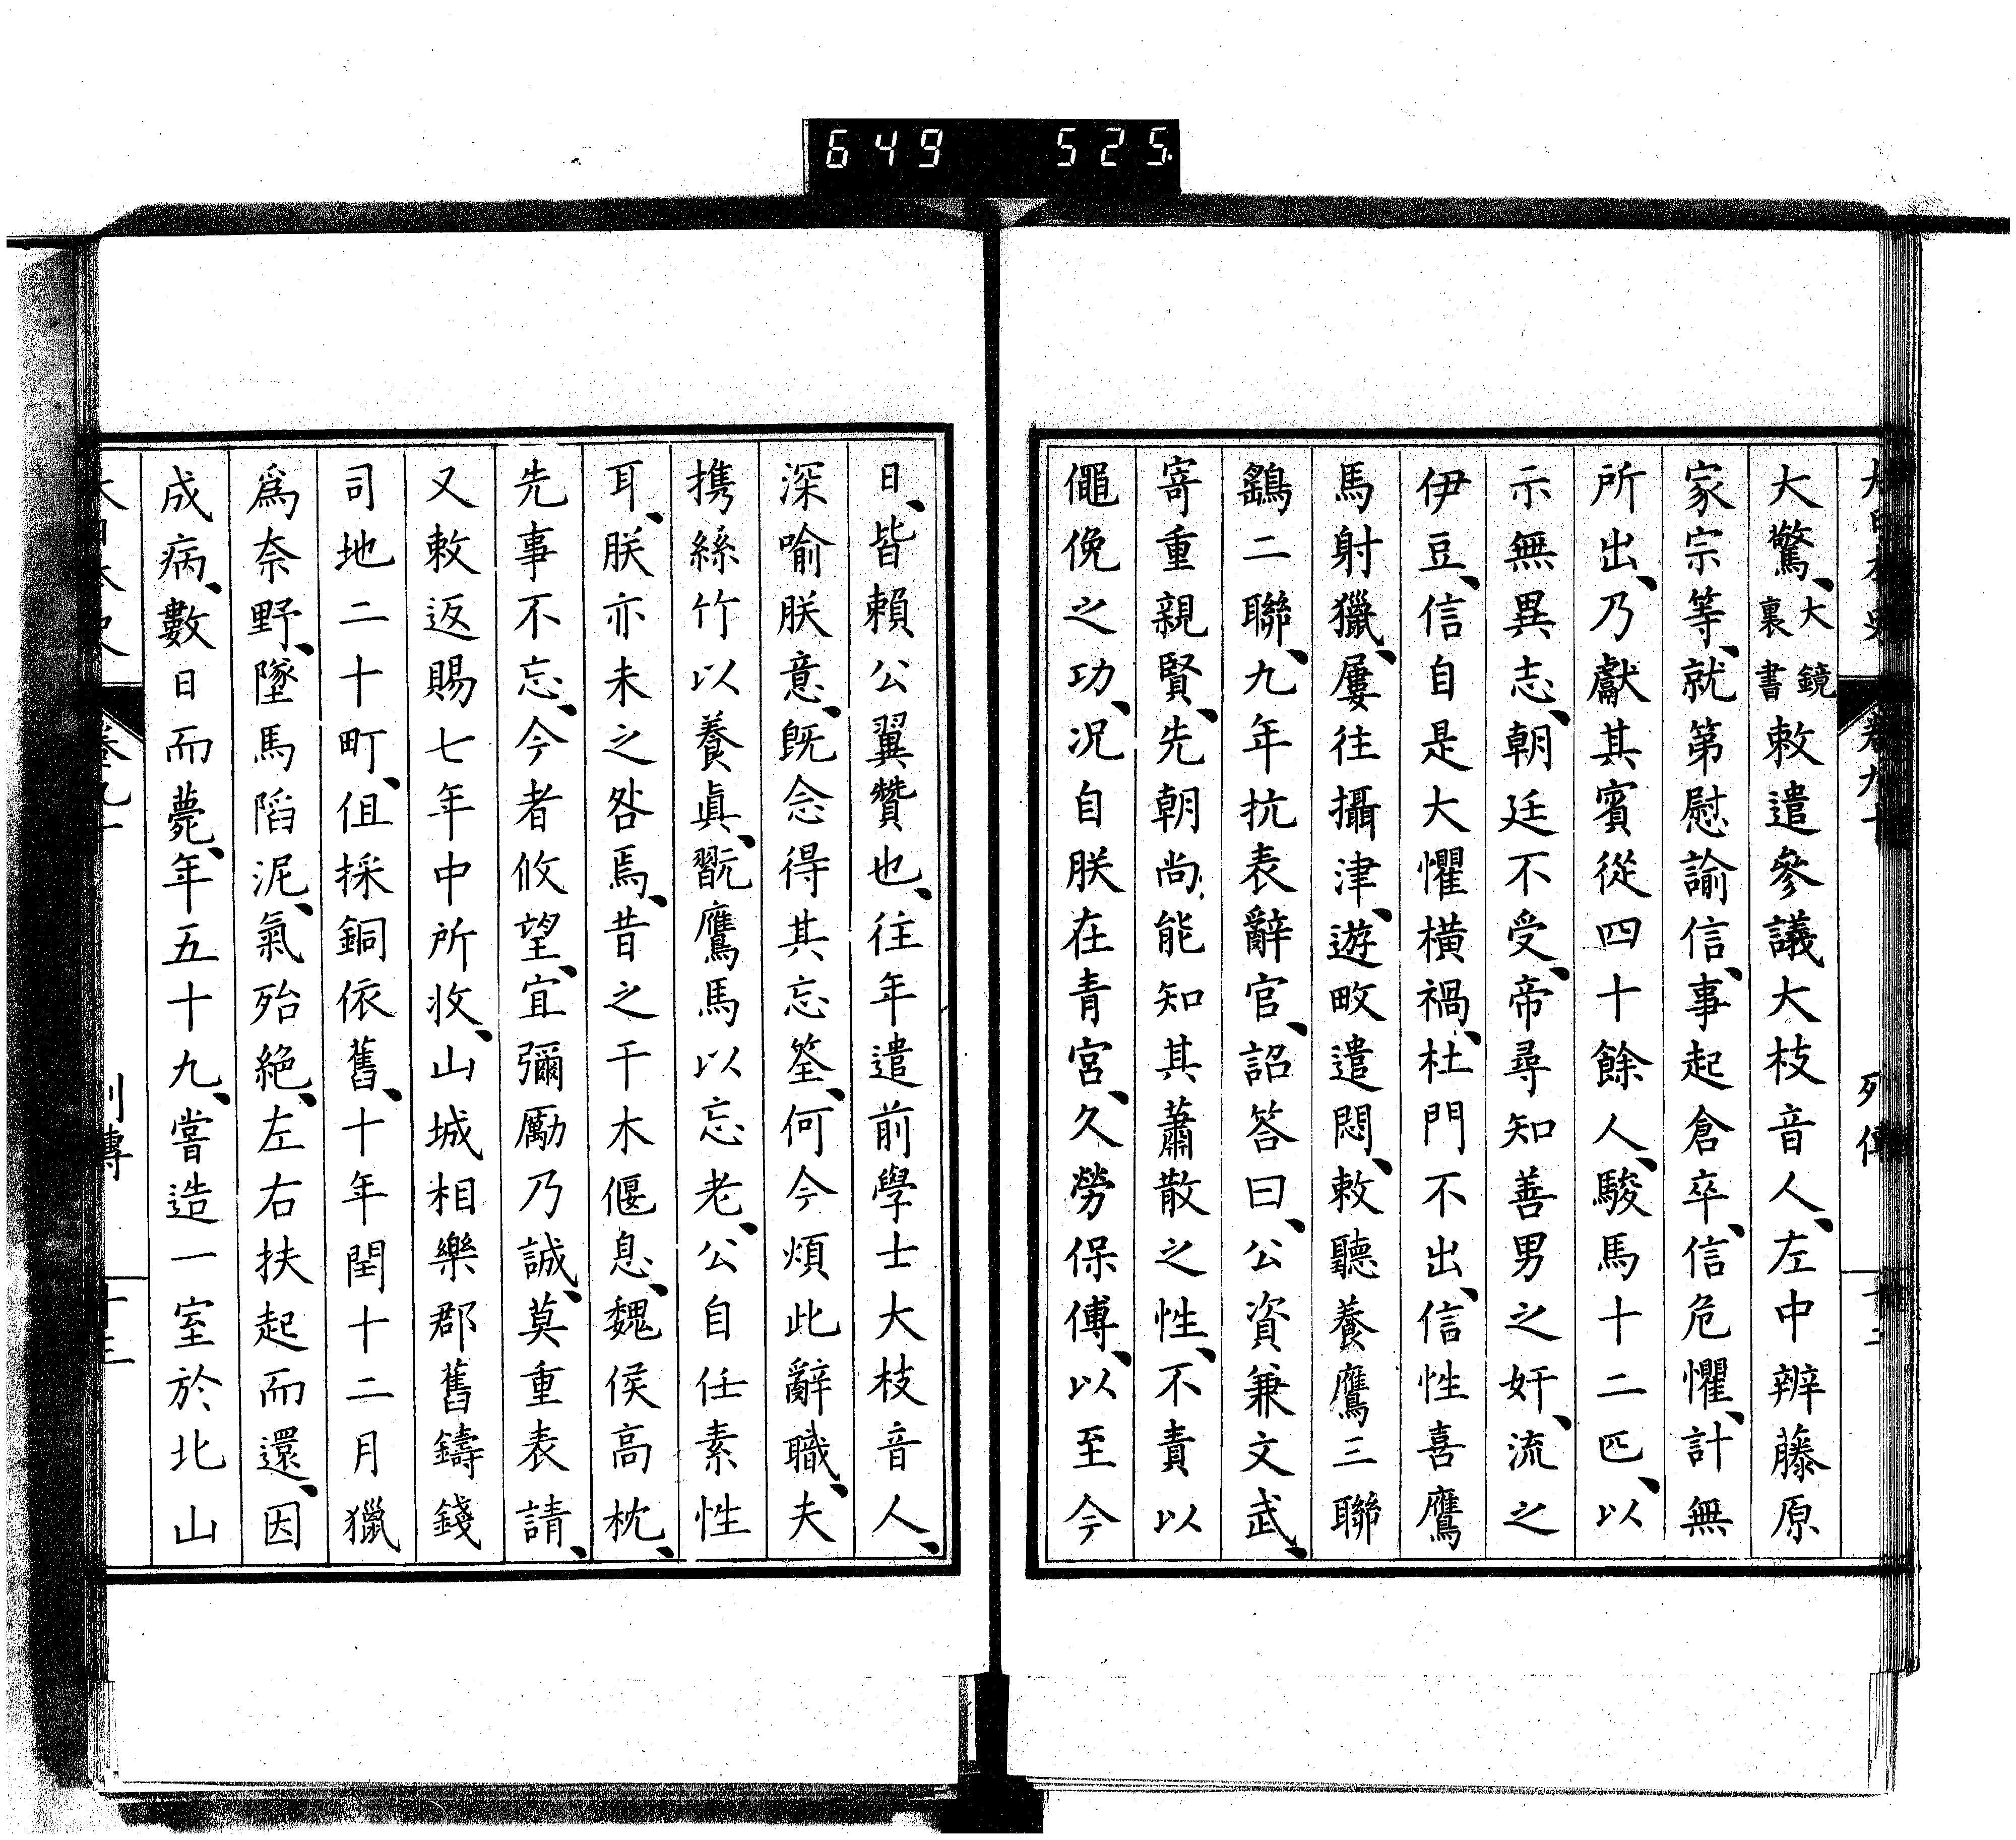 649 525
大日本史 卷九十 列傳 十三
大驚、大鏡裏書敕遣參議大枝音人、左中辨藤原
家宗等、就第慰諭信、事起倉卒、信危懼、計無
所出、乃獻其賓從四十餘人、駿馬十二匹、以
示無異志、朝廷不受、帝尋知善男之奸、流之
伊豆、信自是大懼橫禍、杜門不出、信性喜鷹
馬射獵、屢往攝津、遊畋遣悶、敕聽養鷹三聯
鷂二聯、九年抗表辭官、詔答曰、公資兼文武、
寄重親賢、先朝尚能知其蕭散之性、不責以
僶俛之功、況自朕在青宮、久勞保傅、以至今
日、皆賴公翼贊也、往年遣前學士大枝音人、
深喻朕意、既念得其忘筌、何今煩此辭職、夫
携絲竹以養眞、翫鷹馬以忘老、公自任素性
耳、朕亦未之咎焉、昔之干木偃息、魏侯高枕、
先事不忘、今者攸望、宜彌勵乃誠、莫重表請、
又敕返賜七年中所收、山城相樂郡舊鑄錢
司地二十町、但採銅依舊、十年閏十二月獵
爲奈野、墜馬陷泥、氣殆絕、左右扶起而還、因
成病、數日而薨、年五十九、嘗造一室於北山
大日本史 卷九十 列傳 十三